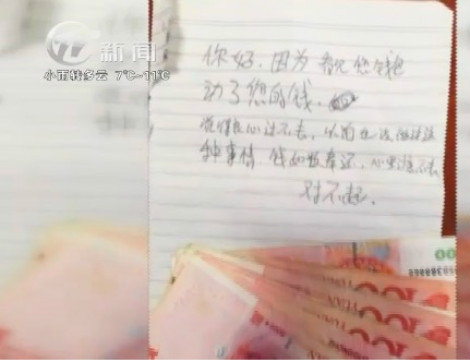 新闻
小雨转多云 7℃~11℃
你好,因为看见您钱包
动了您的钱,
觉得良心过不去,以前也没做过这
种事情,钱如数奉还,心里过不去
对不起,
100
100
100
100